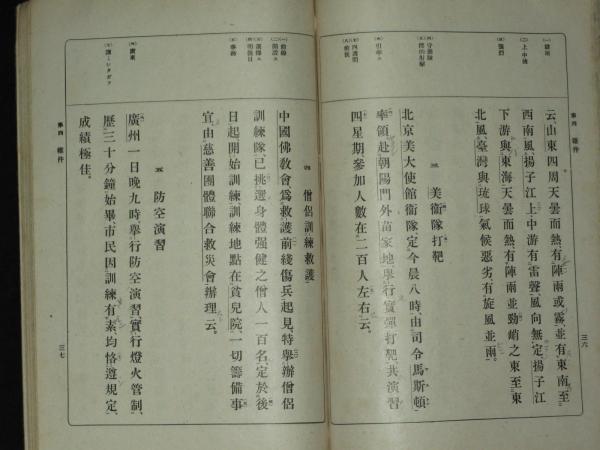 第四　雜件
三六
云、山東四周天曇而熱、有陣雨或霧、並有東南至
西南風、揚子江上中游有雷聲、風向無定、揚子江
下游與東海天曇而熱、有陣雨並勁峭之東至東
北風、臺灣與琉球氣候惡劣有旋風並雨。
三　美衞隊打靶
北京美大使館衞隊、定今晨八時、由司令馬斯頓
率領赴朝陽門外苗家地、舉行實彈打靶、共演習
四星期、參加人數在二百人左右云。
四　僧侶訓練救護
中國佛敎會爲救護前綫傷兵起見、特擧辦僧侶
訓練隊、已挑選身體强健之僧人一百名、定於後
日起開始訓練、訓練地點在貧兒院、一切籌備事
宜、由慈善團體聯合救災會辦理云。
五　防空演習
廣州一日晚九時擧行防空演習、實行燈火管制、
歷三十分鐘始畢、市民因訓練有素、均恪遵規定、
成績極佳。
第四　雜件
三七